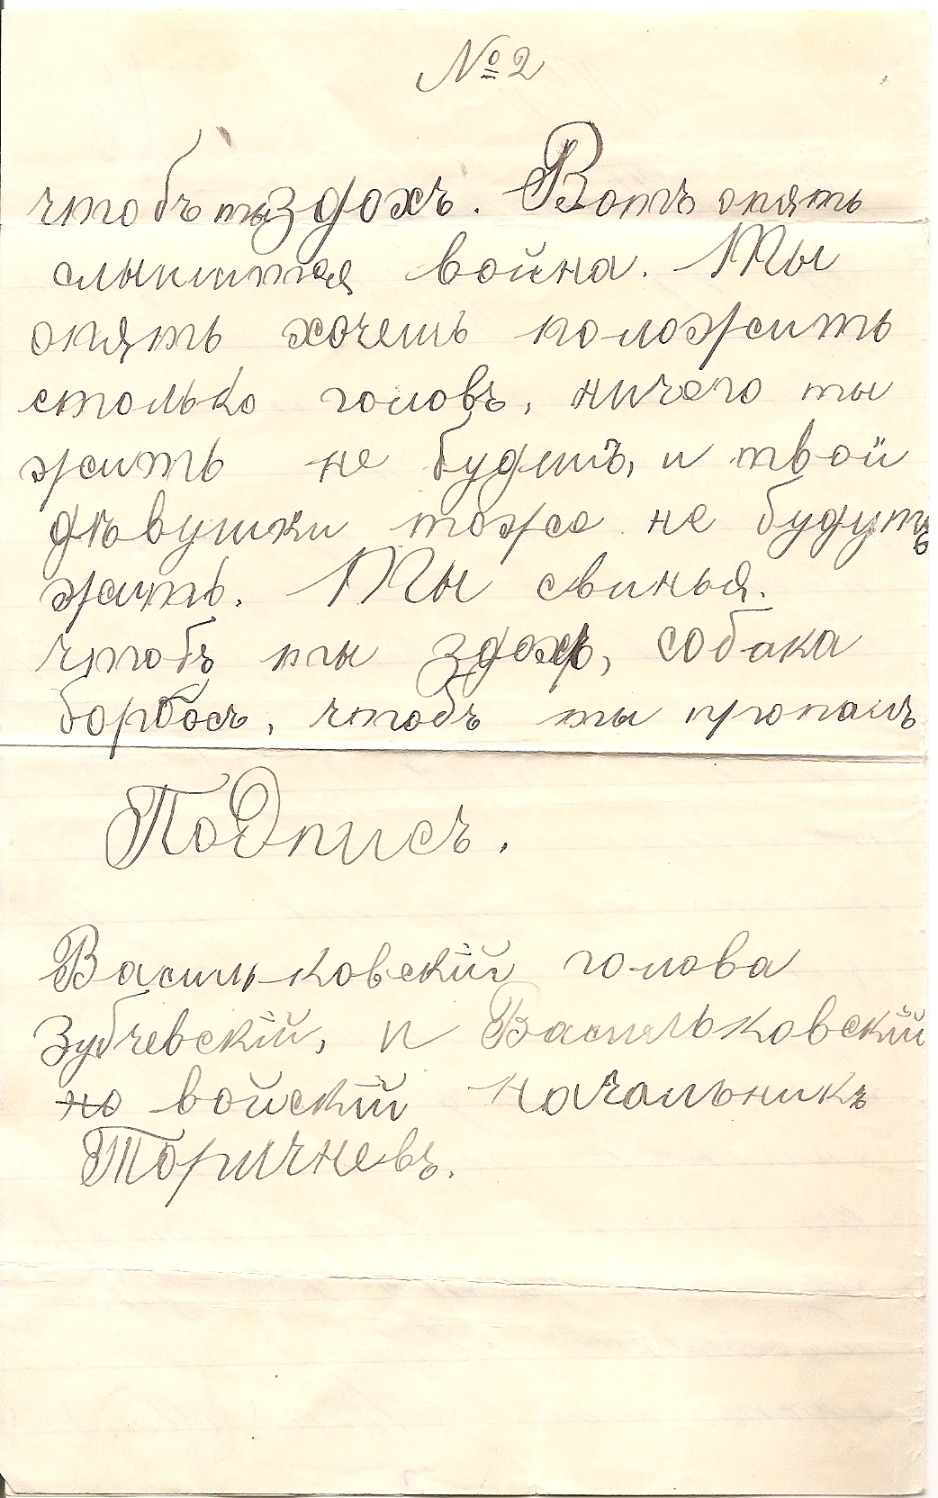 № 2
чтобъ ты здохъ. Вотъ опять
слышится война. Ты
опять хочешь положить
столько головъ, ничего ты
жить не будишъ, и твои
дѣвушки тоже не будутъ
жить. Ты свинья.
чтобъ ты здохъ, собака
борбосъ, чтобъ ты пропалъ
Подписъ.
Васильковскій голова
Зубчевскій, и Васильковскій
но войскій начальникъ